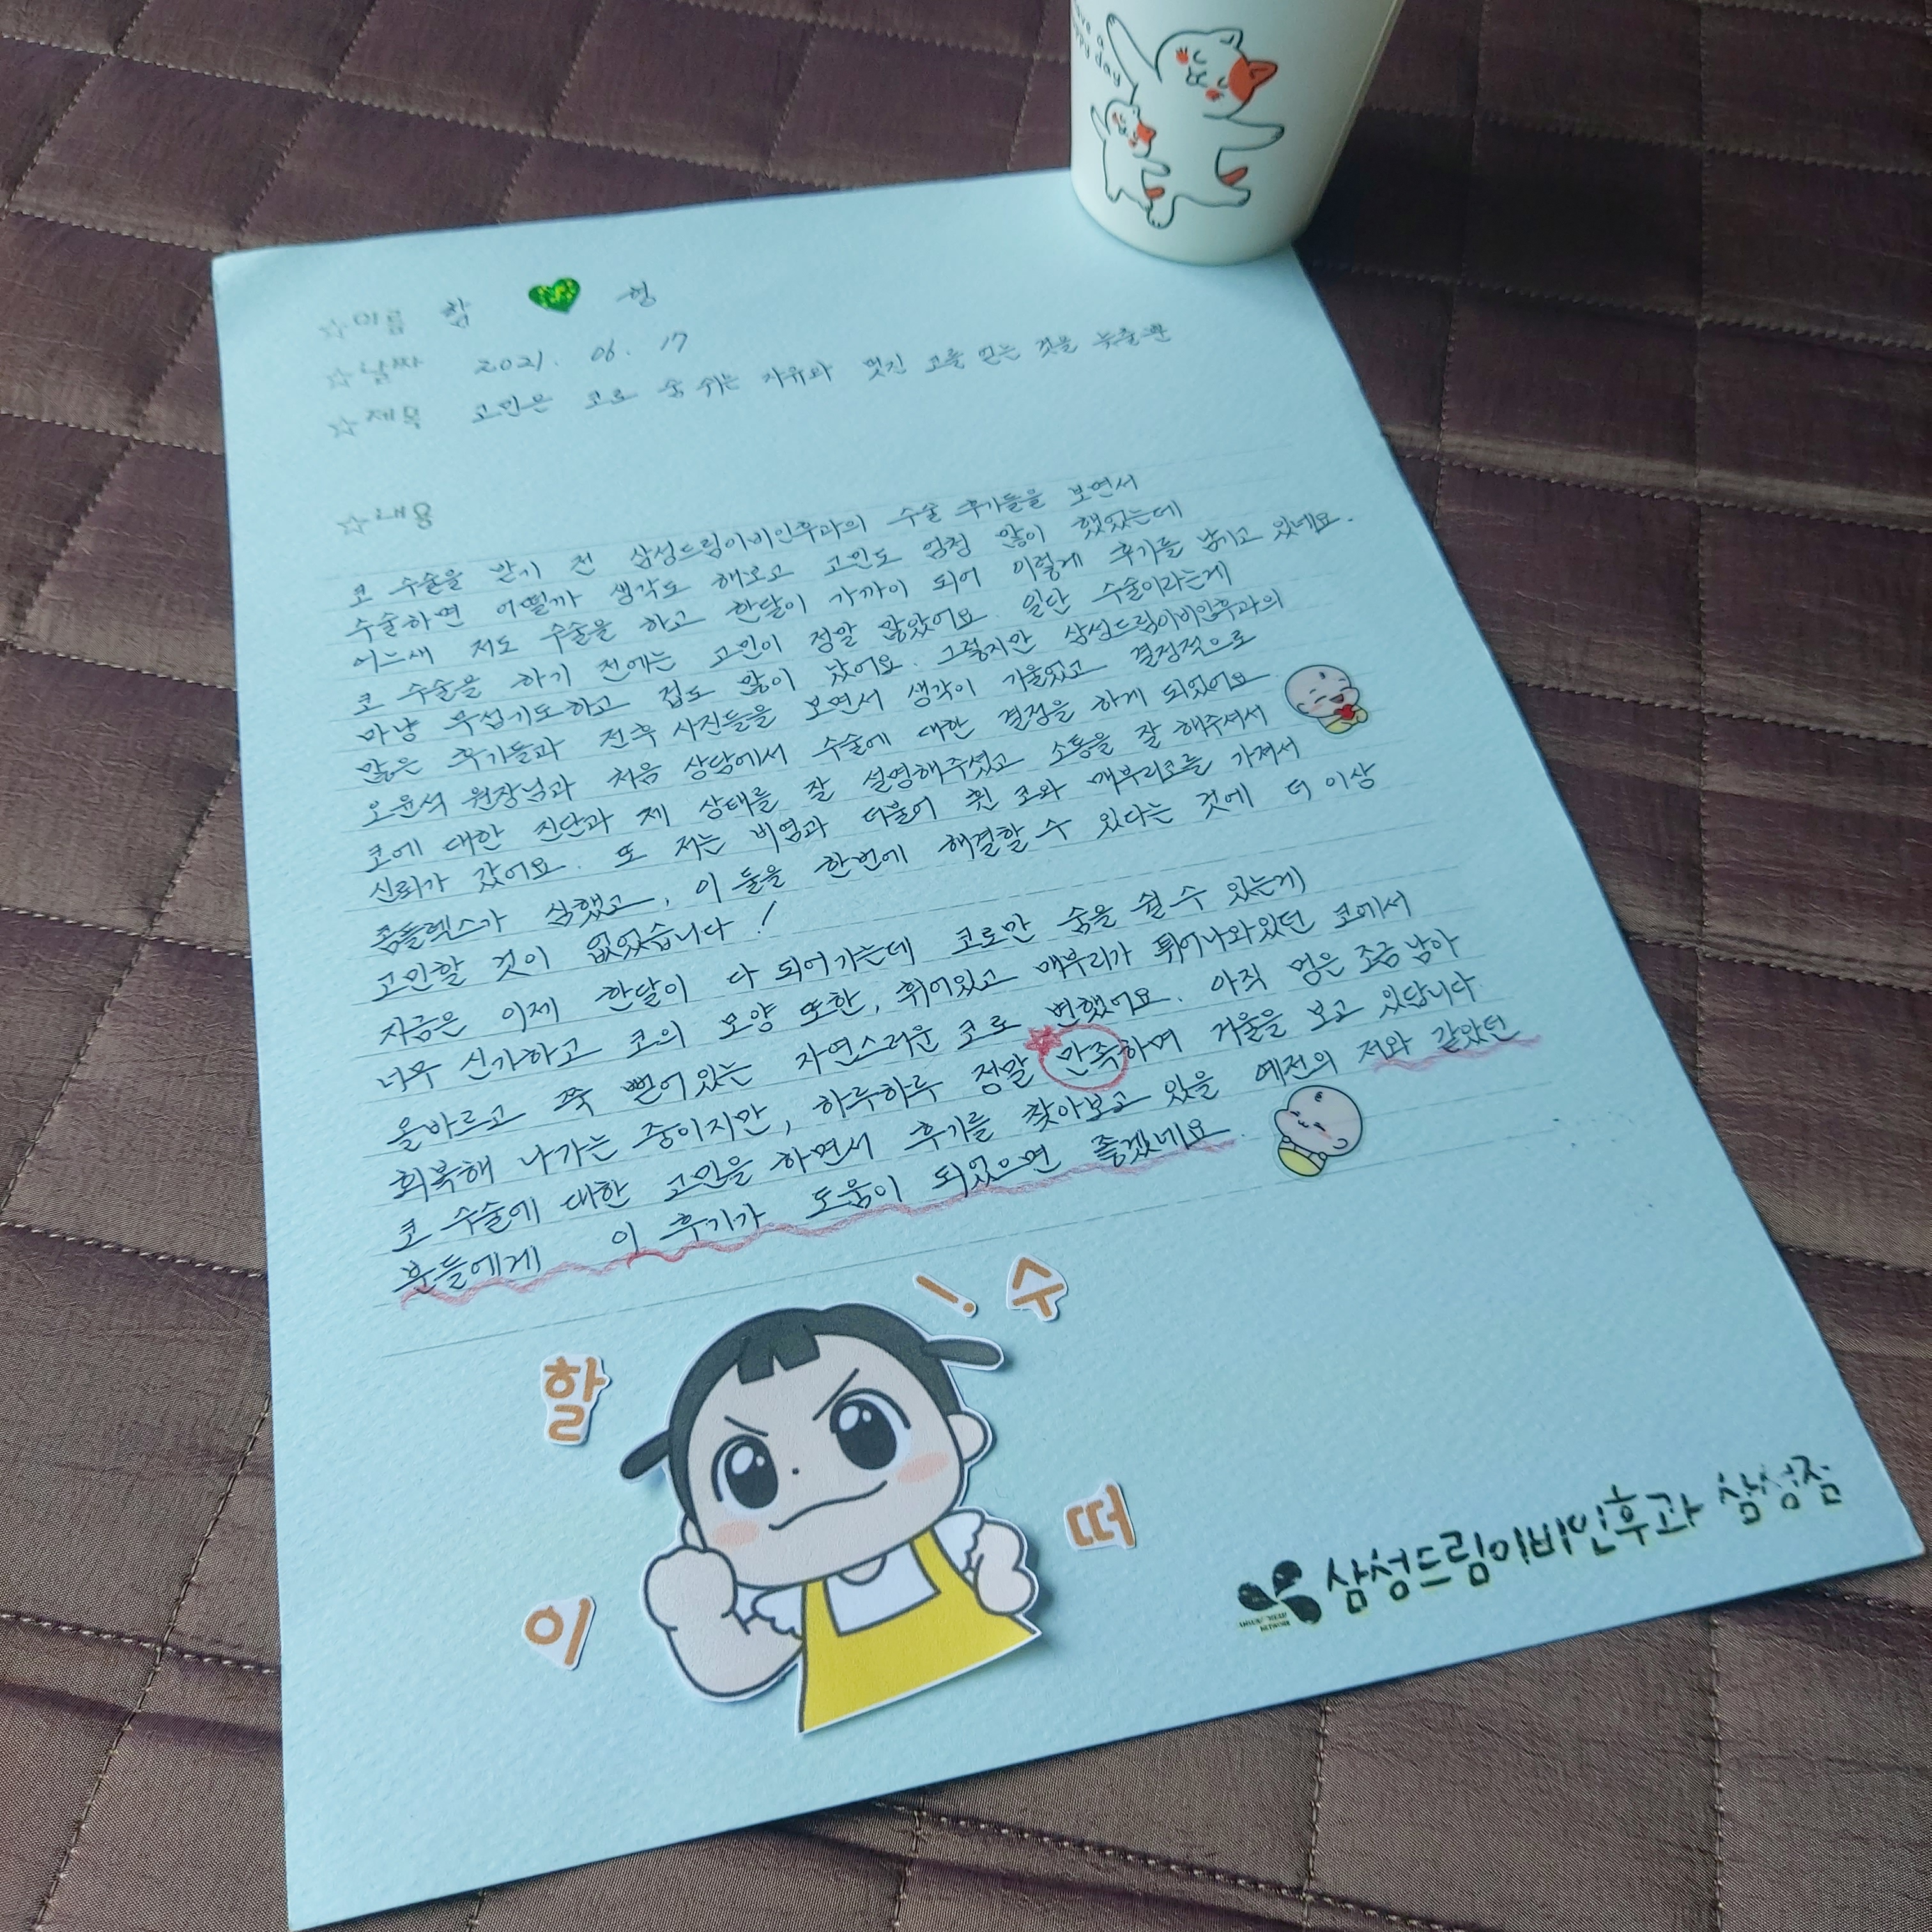 have a
happy day
☆이름 함 형
☆날짜 2021. 06. 17
☆제목 고민은 코로 숨 쉬는 자유와 멋진 코를 얻는 것을 늦출뿐
☆내용
코 수술을 받기 전 삼성드림이비인후과의 수술 후기들을 보면서
수술하면 어떨까 생각도 해보고 고민도 엄청 많이 했었는데
어느새 저도 수술을 하고 한달이 가까이 되어 이렇게 후기를 남기고 있네요.
코 수술을 하기 전에는 고민이 정말 많았어요. 일단 수술이라는게
마냥 무섭기도하고 겁도 많이 났어요. 그렇지만 삼성드림이비인후과의
많은 후기들과 전후 사진들을 보면서 생각이 기울었고 결정적으로
오윤석 원장님과 처음 상담에서 수술에 대한 결정을 하게 되었어요
코에 대한 진단과 제 상태를 잘 설명해주셨고 소통을 잘 해주셔서
신뢰가 갔어요. 또 저는 비염과 더불어 휜 코와 매부리코를 가져서
콤플렉스가 심했고, 이 둘을 한번에 해결할 수 있다는 것에 더 이상
고민할 것이 없었습니다!
지금은 이제 한달이 다 되어가는데 코로만 숨을 쉴 수 있는게
너무 신기하고 코의 모양 또한, 휘어있고 매부리가 튀어나와있던 코에서
올바르고 쭉 뻗어있는 자연스러운 코로 변했어요. 아직 멍은 조금 남아
회복해 나가는 중이지만, 하루하루 정말 만족하며 거울을 보고 있답니다.
코 수술에 대한 고민을 하면서 후기를 찾아보고 있을 예전의 저와 같았던
분들에게 이 후기가 도움이 되었으면 좋겠네요.
할 수
이 떠
!
삼성드림이비인후과 삼성점